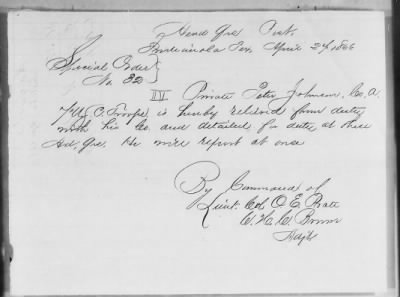 Head Qrs Post
Indianola Tex, April 24 1866
Special Order
No. 32
IV Private Peter Johnson, Co. A.
7 U.S. C. Troops is hereby relieved from duty
with his Co. and detailed for duty at these
Hd. Qrs. He will report at once
By Command of
Lieut. Col. O. E. Pratt
C. H. C. Brown
Adjt